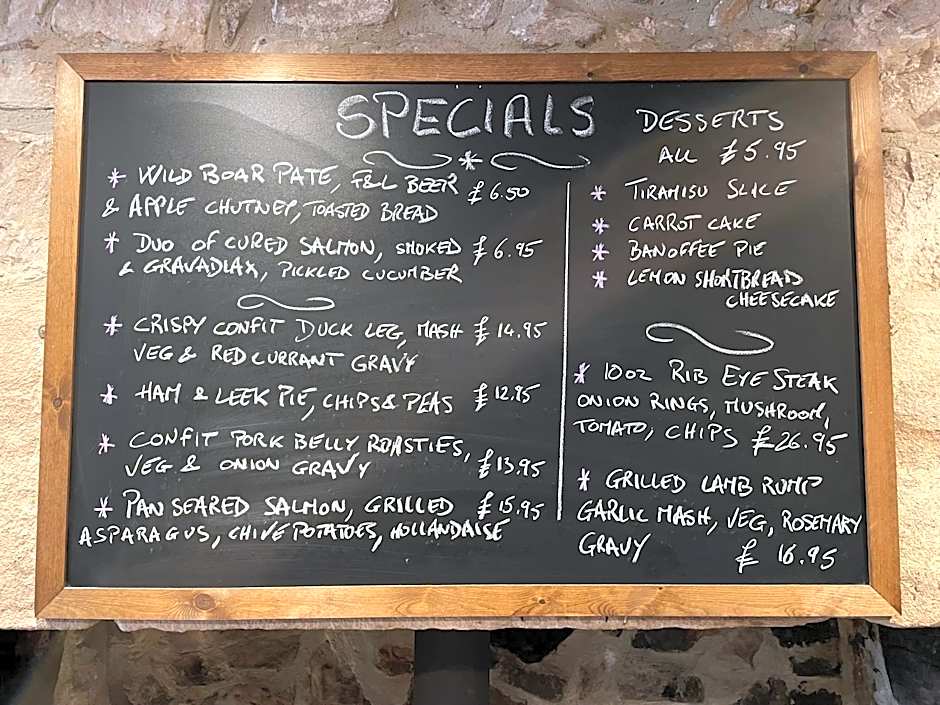 SPECIALS
* WILD BOAR PATE, F&L BEER £6.50
& APPLE CHUTNEY, TOASTED BREAD
* DUO OF CURED SALMON, SMOKED £6.95
& GRAVADLAX, PICKLED CUCUMBER
* CRISPY CONFIT DUCK LEG, MASH £14.95
VEG & RED CURRANT GRAVY
* HAM & LEEK PIE, CHIPS & PEAS £12.95
* CONFIT PORK BELLY ROASTIES,
VEG & ONION GRAVY £13.95
* PAN SEARED SALMON, GRILLED £15.95
ASPARAGUS, CHIVE POTATOES, HOLLANDAISE
DESSERTS
ALL £5.95
* TIRAMISU SLICE
* CARROT CAKE
* BANOFFEE PIE
* LEMON SHORTBREAD
CHEESECAKE
* 10oz RIB EYE STEAK
ONION RINGS, MUSHROOM,
TOMATO, CHIPS £26.95
* GRILLED LAMB RUMP
GARLIC MASH, VEG, ROSEMARY
GRAVY £16.95